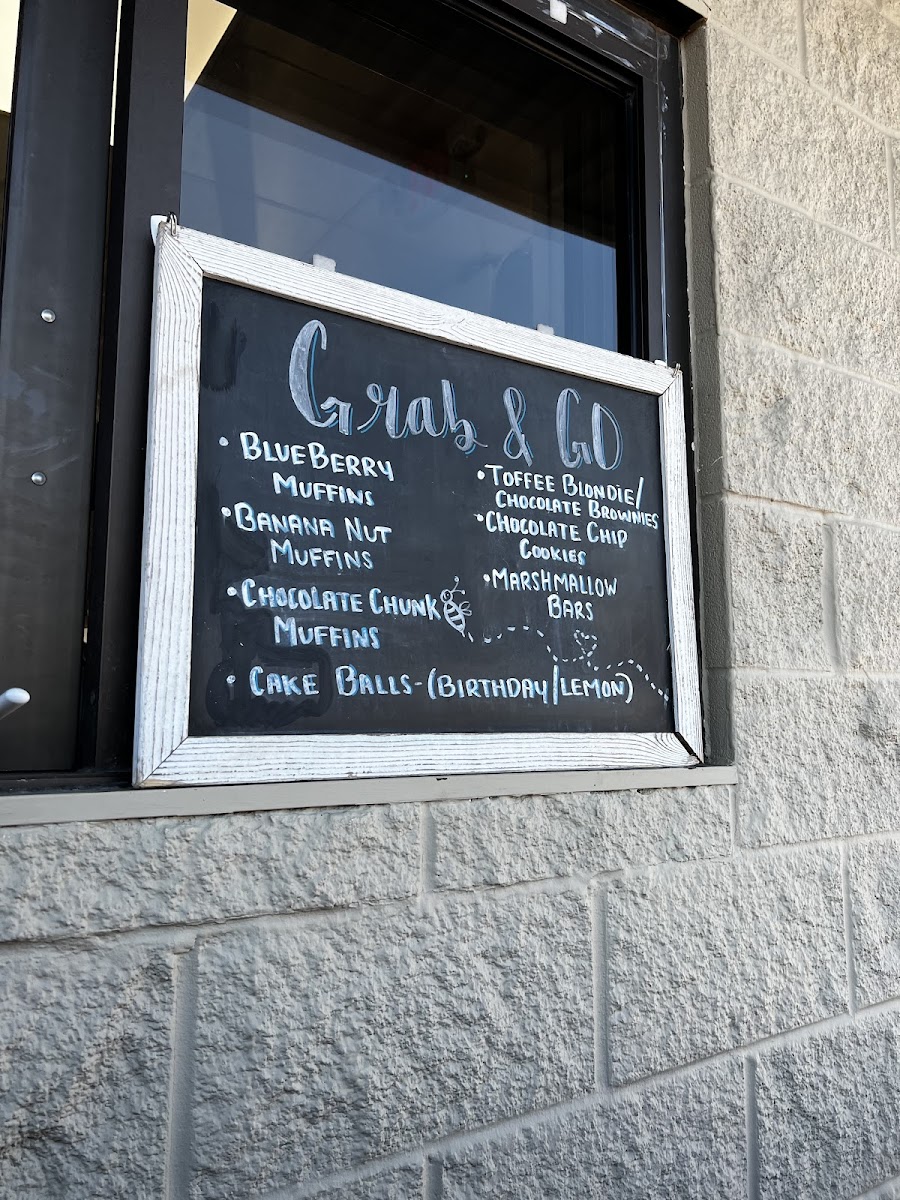 Grab & GO
• BLUEBERRY
MUFFINS
• BANANA NUT
MUFFINS
• CHOCOLATE CHUNK
MUFFINS
• CAKE BALLS-(BIRTHDAY/LEMON)
• TOFFEE BLONDIE/
CHOCOLATE BROWNIES
• CHOCOLATE CHIP
COOKIES
• MARSHMALLOW
BARS